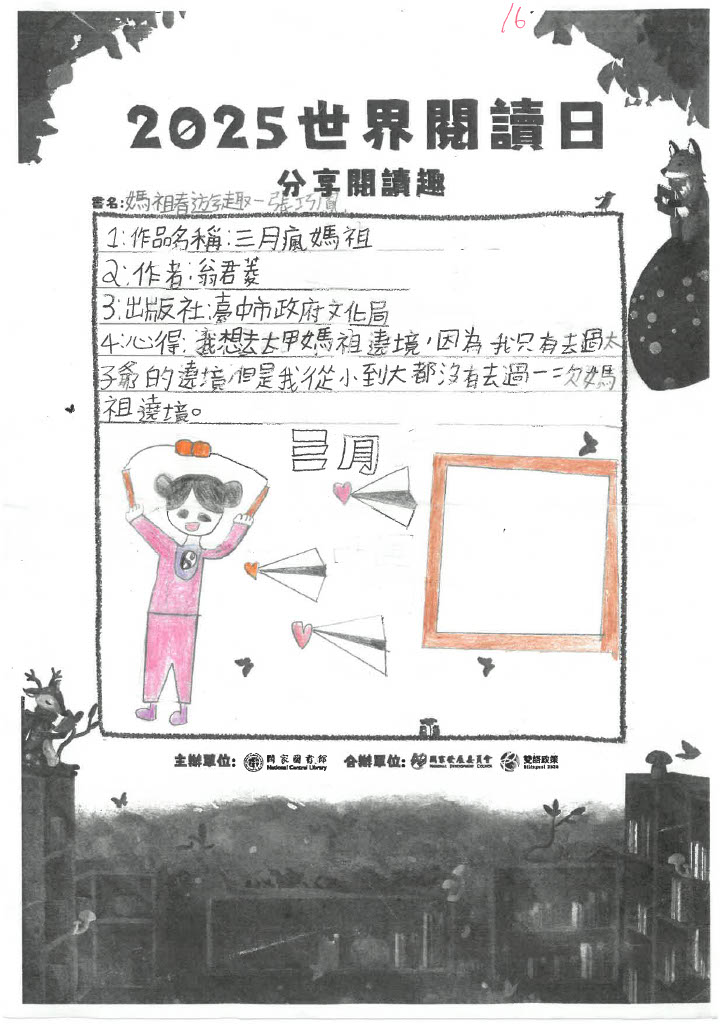 16
2025世界閱讀日
分享閱讀趣
書名:媽祖春遊趣-張巧鳳
1:作品名稱:三月瘋媽祖
2:作者:翁君菱
3:出版社:臺中市政府文化局
4:心得:我想去大甲媽祖遶境,因為我只有去過太
子爺的遶境,但是我從小到大都沒有去過一二次媽
祖遶境。
三月
主辦單位: 國家圖書館 National Central Library 合辦單位: 國家發展委員會 NATIONAL DEVELOPMENT COUNCIL 雙語政策 Bilingual 2030